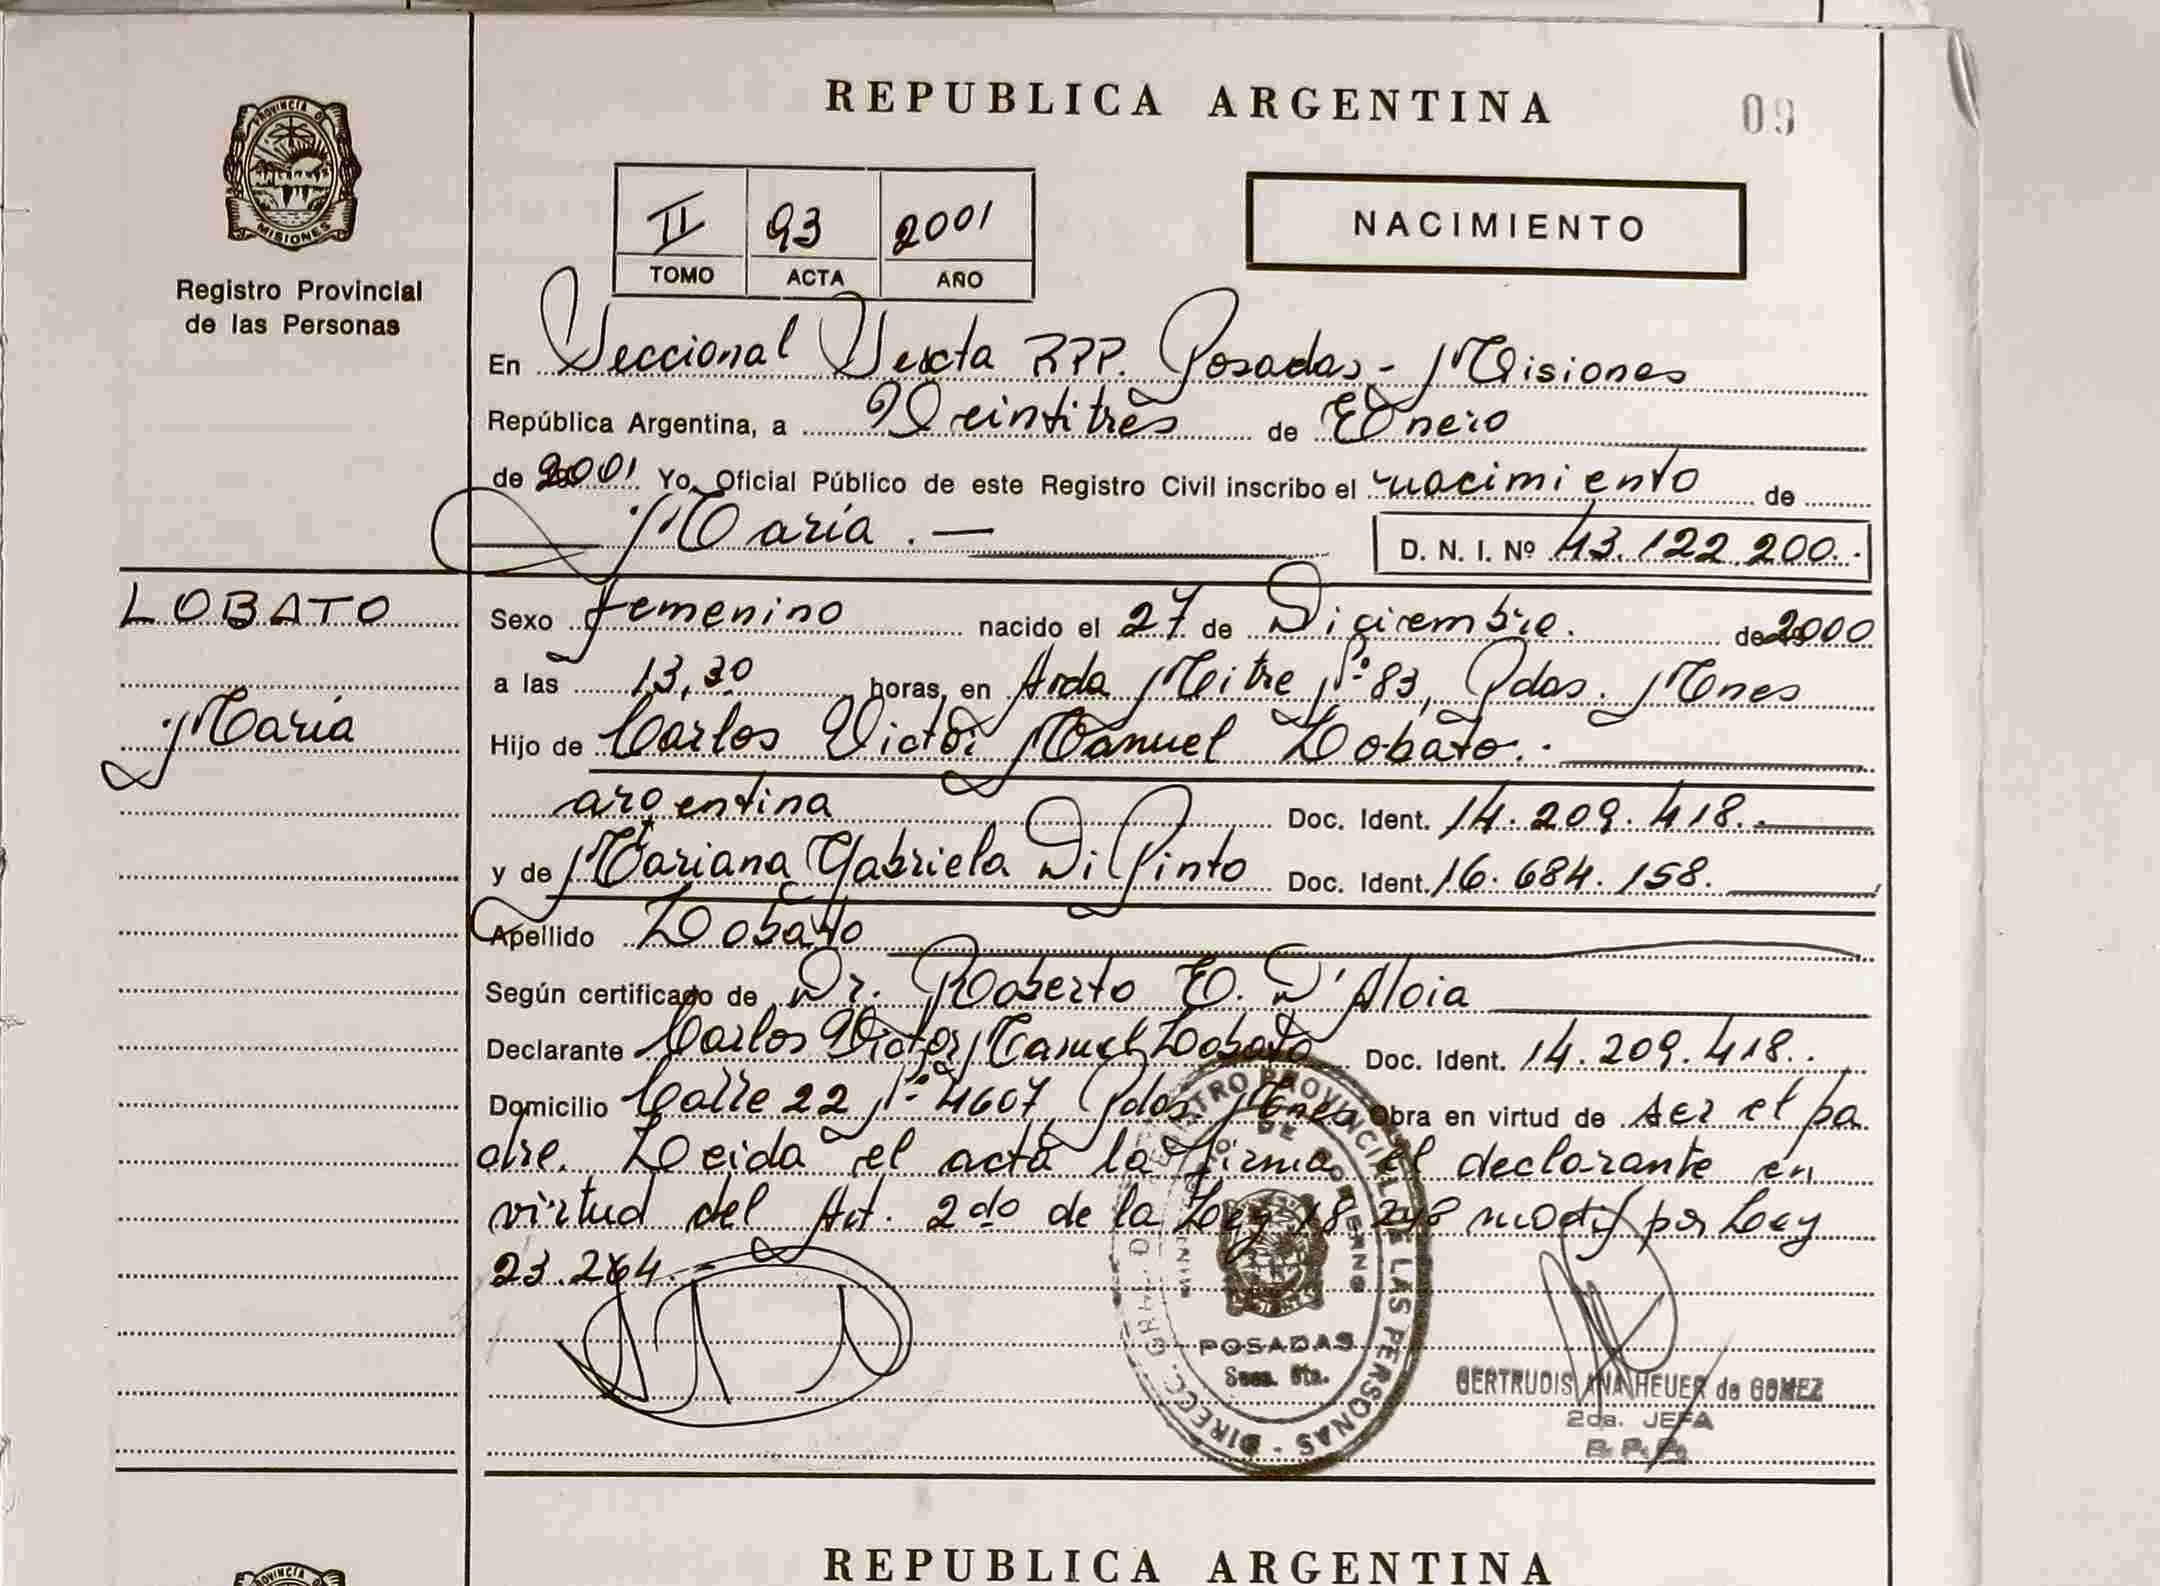 REPUBLICA ARGENTINA
09
PROVINCIA DE
MISIONES
Registro Provincial
de las Personas
II 93 2001
TOMO ACTA AÑO
NACIMIENTO
En Seccional Sexta RPP. Posadas - Misiones
República Argentina, a Veintitrés de Enero
de 2001 Yo, Oficial Público de este Registro Civil inscribo el nacimiento de
María . —
D. N. I. Nº 43.122.200.
LOBATO
María
Sexo femenino nacido el 27 de Diciembre. de 2000
a las 13,30 horas, en Avda Mitre Nº 83, Pdas. Mnes
Hijo de Carlos Victor Manuel Lobato.
argentina Doc. Ident. 14.209.418.
y de Mariana Gabriela Di Pinto Doc. Ident. 16.684.158.
Apellido Lobato
Según certificado de Dr. Roberto E. D'Aloia
Declarante Carlos Victor Manuel Lobato Doc. Ident. 14.209.418.
Domicilio Calle 22 Nº 4607 Pdas. Mnes Obra en virtud de ser el pa
dre. Leida el acta la firma el declarante en
virtud del Art. 2do de la Ley 18.248 modif por Ley
23.264.-
DIRECC. GRAL. DEL REGISTRO PROVINCIAL DE LAS PERSONAS
DE GOBIERNO
POSADAS
Secc. 6ta.
GERTRUDIS ANA HEUER de GOMEZ
2da. JEFA
R. P. P.
REPUBLICA ARGENTINA